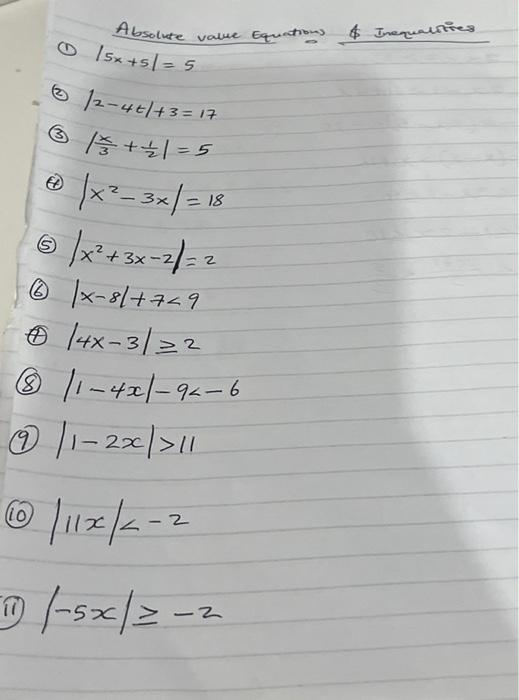 Absolute value Equations & Inequalities
① |5x+5| = 5
② |2-4t|+3 = 17
③ |x/3 + 1/2| = 5
④ |x² - 3x| = 18
⑤ |x² + 3x - 2| = 2
⑥ |x-8|+7<9
⑦ |4x-3| ≥ 2
⑧ |1-4x|-9<-6
⑨ |1-2x|>11
⑩ |11x|<-2
⑪ |-5x| ≥ -2